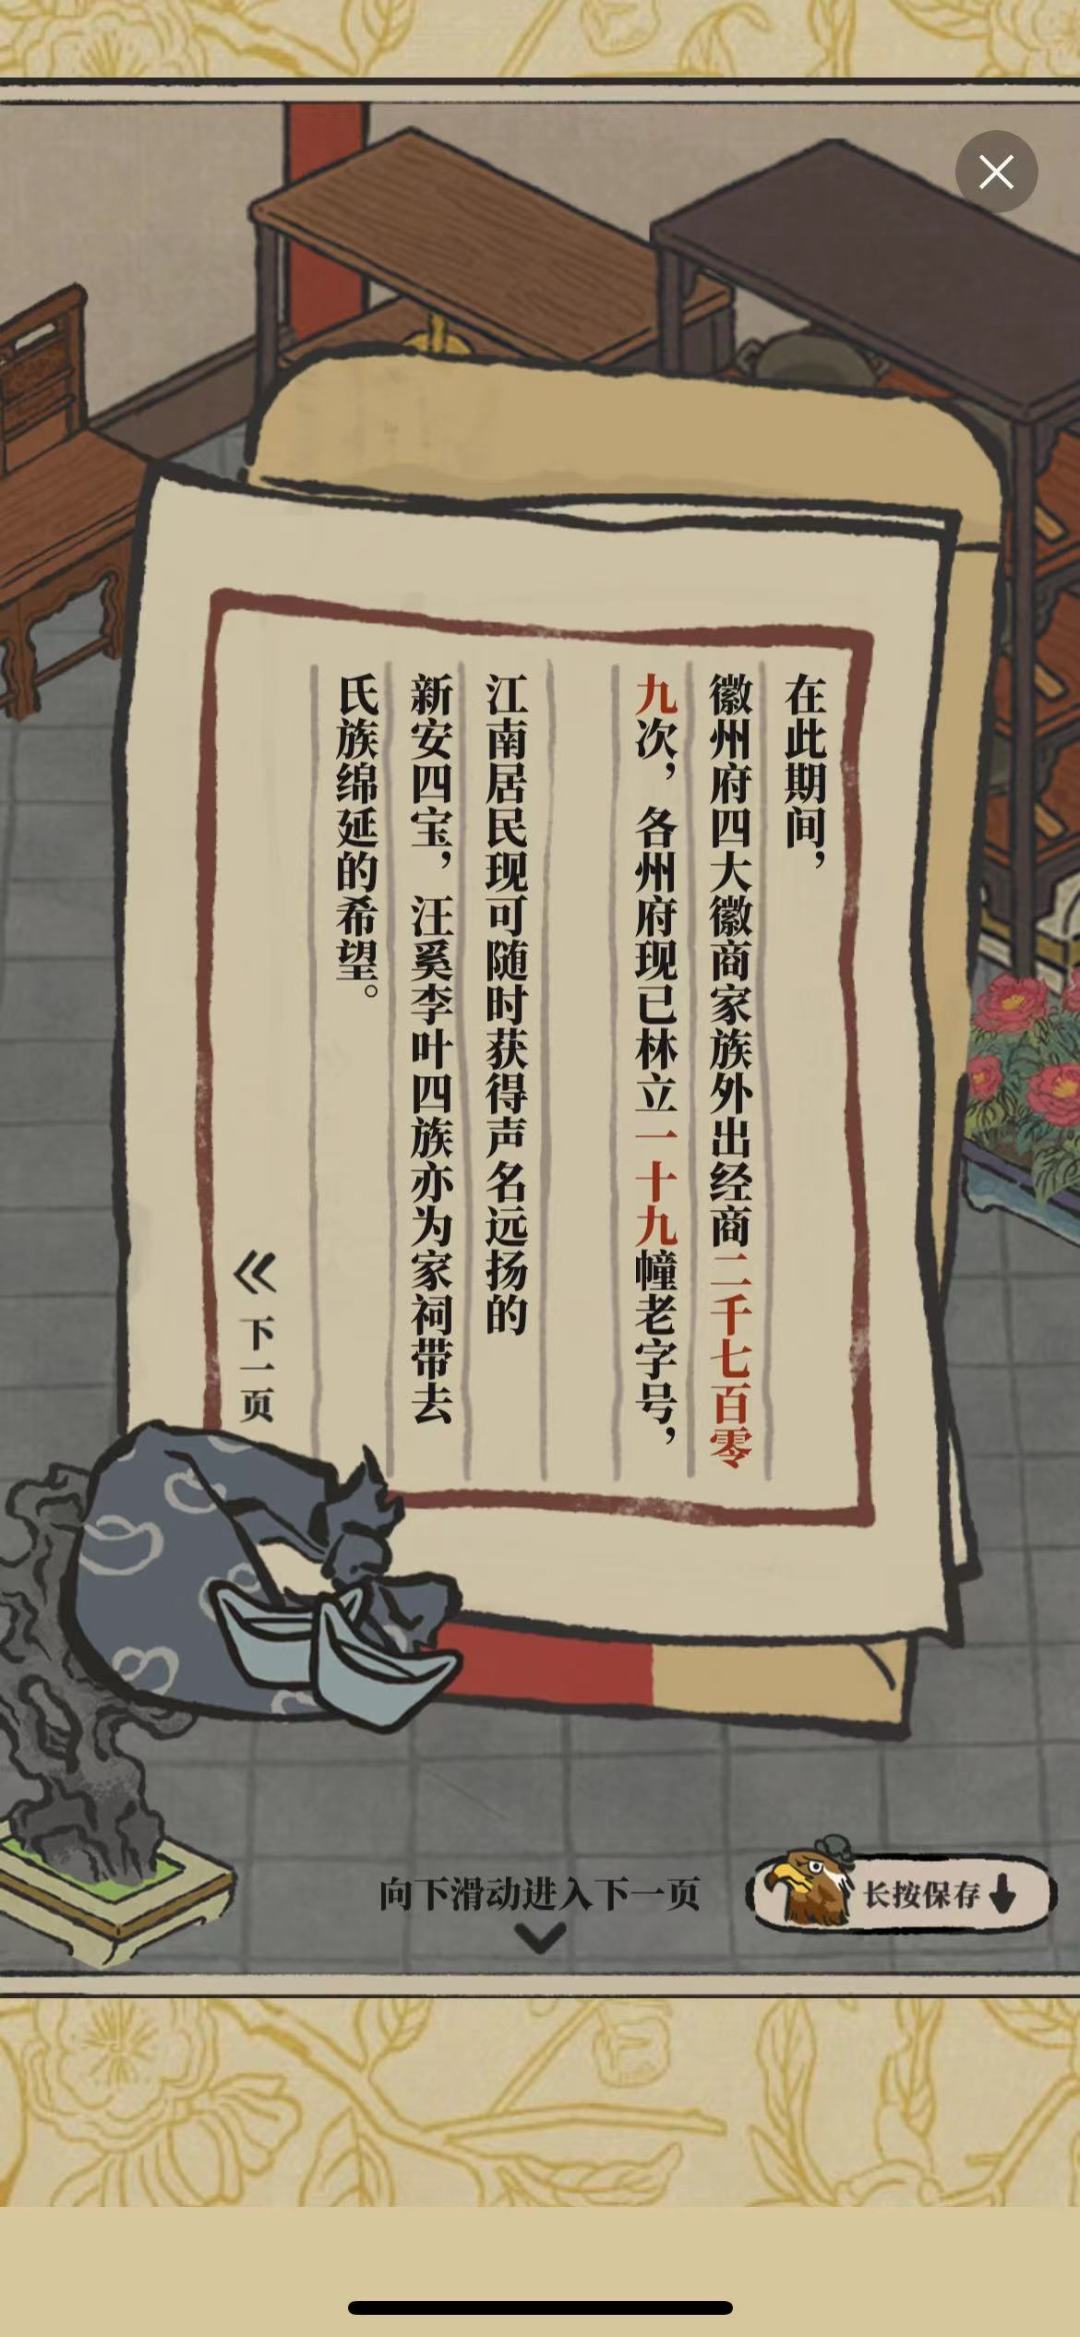 在此期间，
徽州府四大徽商家族外出经商二千七百零
九次，各州府现已林立一十九幢老字号，
江南居民现可随时获得声名远扬的
新安四宝，汪奚李叶四族亦为家祠带去
氏族绵延的希望。
《 下一页
向下滑动进入下一页
长按保存